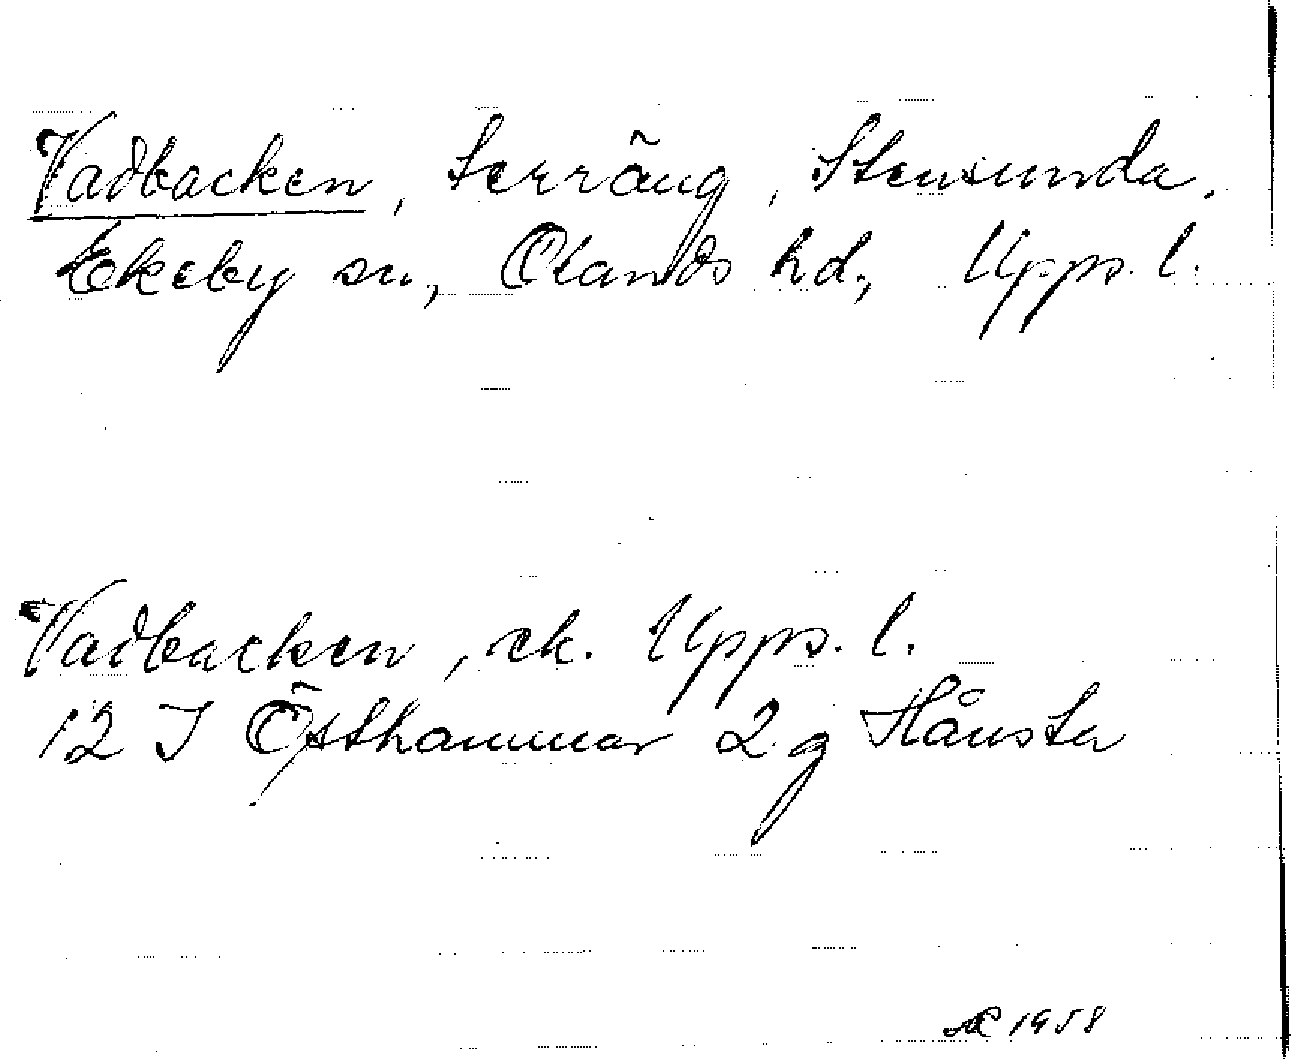 Vadbacken, terräng, Stensunda,
Ekeby sn, Olands hd, Upps. l.
Vadbacken, ek. Upps. l.
12 I Östhammar 2 g Hånsta
1958